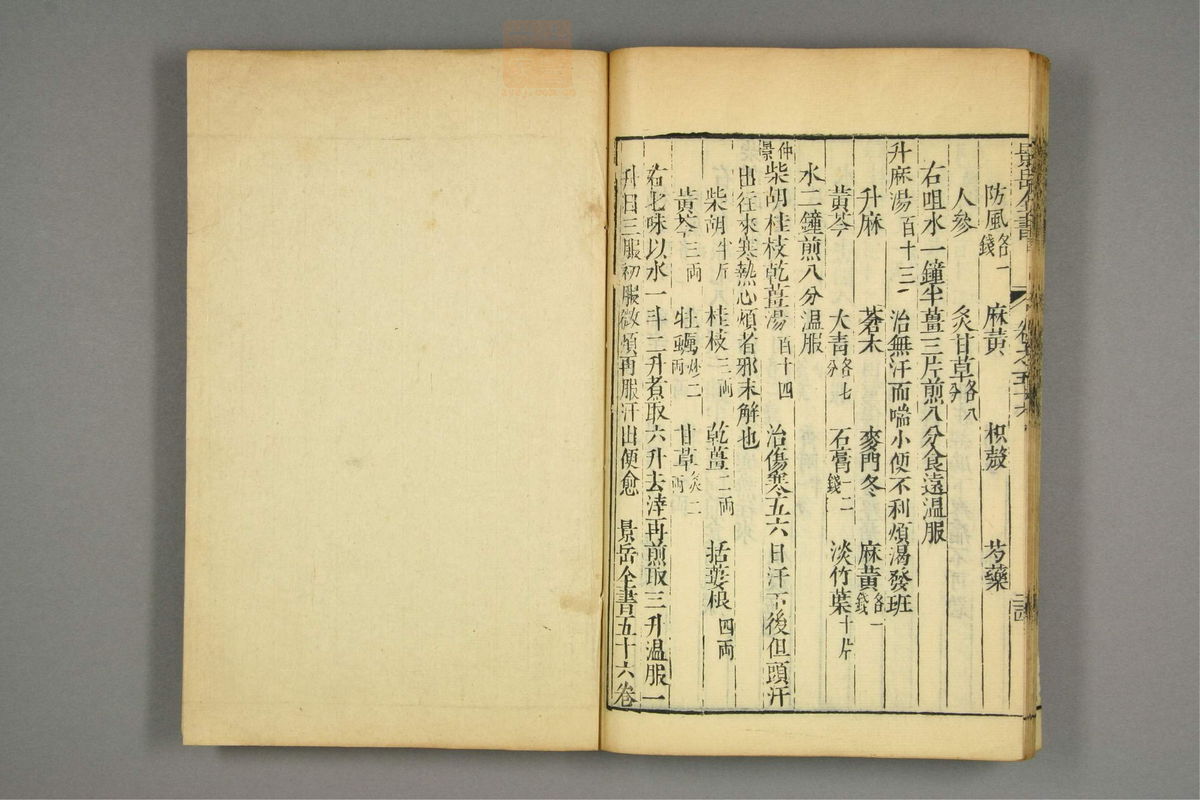 景岳全書 卷之五十六
防風各一錢 麻黃 枳殼 芍藥
人參 炙甘草各八分
右咀水一鐘半薑三片煎八分食遠温服
升麻湯百十三 治無汗而喘小便不利煩渴發班
升麻 蒼术 麥門冬 麻黃各一錢
黃芩 大青各七分 石膏一二錢 淡竹葉十片
水二鐘煎八分温服
仲景柴胡桂枝乾薑湯百十四 治傷寒五六日汗下後但頭汗
出往來寒熱心煩者邪未解也
柴胡半斤 桂枝三両 乾薑二両 括蔞根四両
黃芩三両 牡蠣炒二両 甘草炙二両
右七味以水一斗二升煮取六升去滓再煎取三升温服一
升日三服初服微煩再服汗出便愈 景岳全書五十六卷